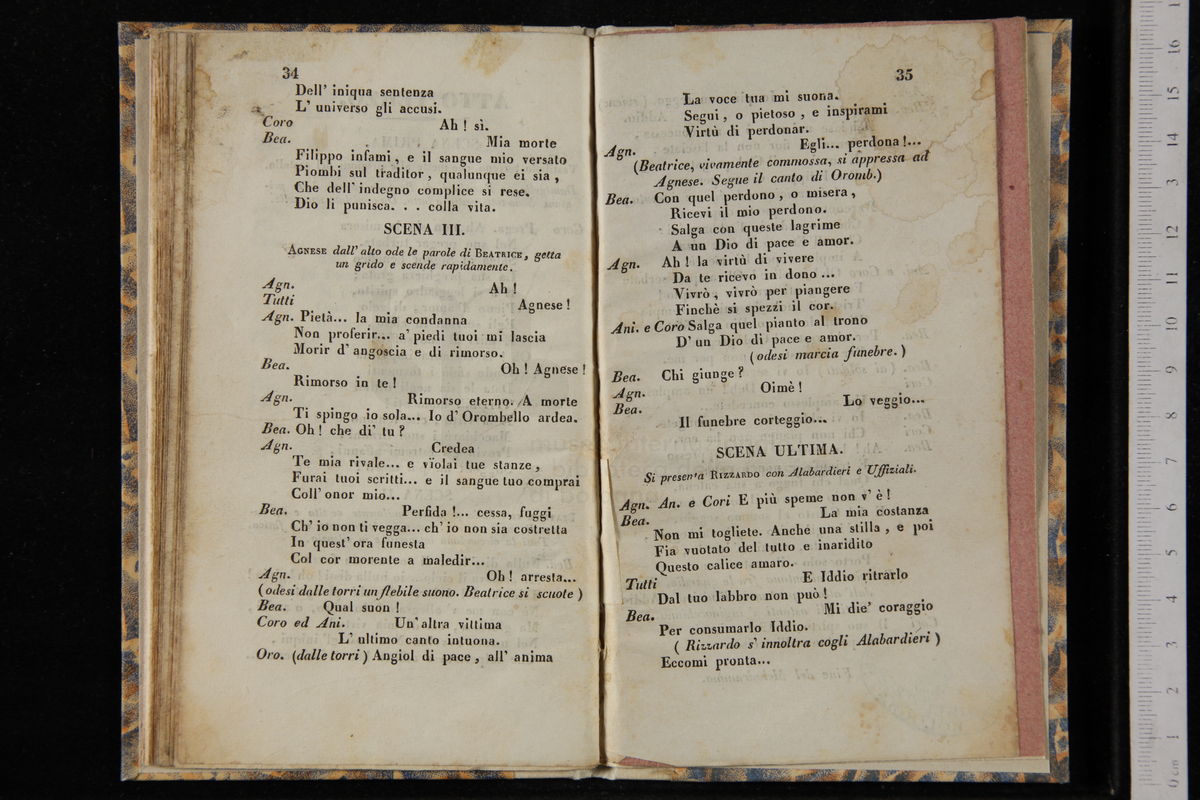 34
Dell' iniqua sentenza
L' universo gli accusi.
Coro Ah ! sì.
Bea. Mia morte
Filippo infami, e il sangue mio versato
Piombi sul traditor, qualunque ei sia,
Che dell' indegno complice si rese.
Dio li punisca. . . colla vita.
SCENA III.
AGNESE dall' alto ode le parole di BEATRICE, getta
un grido e scende rapidamente.
Agn. Ah !
Tutti Agnese !
Agn. Pietà... la mia condanna
Non proferir... a' piedi tuoi mi lascia
Morir d' angoscia e di rimorso.
Bea. Oh ! Agnese !
Rimorso in te !
Agn. Rimorso eterno. A morte
Ti spingo io sola... Io d' Orombello ardea.
Bea. Oh ! che di' tu ?
Agn. Credea
Te mia rivale... e violai tue stanze,
Furai tuoi scritti... e il sangue tuo comprai
Coll' onor mio...
Bea. Perfida !... cessa, fuggi
Ch' io non ti vegga... ch' io non sia costretta
In quest' ora funesta
Col cor morente a maledir...
Agn. Oh ! arresta...
(odesi dalle torri un flebile suono. Beatrice si scuote )
Bea. Qual suon !
Coro ed Ani. Un' altra vittima
L' ultimo canto intuona.
Oro. (dalle torri) Angiol di pace, all' anima
35
La voce tua mi suona.
Segui, o pietoso, e inspirami
Virtù di perdonar.
Agn. Egli... perdona !...
(Beatrice, vivamente commossa, si appressa ad
Agnese. Segue il canto di Oromb.)
Bea. Con quel perdono, o misera,
Ricevi il mio perdono.
Salga con queste lagrime
A un Dio di pace e amor.
Agn. Ah ! la virtù di vivere
Da te ricevo in dono ...
Vivrò, vivrò per piangere
Finchè si spezzi il cor.
Ani. e Coro Salga quel pianto al trono
D' un Dio di pace e amor.
(odesi marcia funebre.)
Bea. Chi giunge ?
Agn. Oimè !
Bea. Lo veggio...
Il funebre corteggio...
SCENA ULTIMA.
Si presenta RIZZARDO con Alabardieri e Uffiziali.
Agn. An. e Cori E più speme non v' è !
Bea. La mia costanza
Non mi togliete. Anche una stilla, e poi
Fia vuotato del tutto e inaridito
Questo calice amaro.
Tutti E Iddio ritrarlo
Dal tuo labbro non può !
Bea. Mi die' coraggio
Per consumarlo Iddio.
( Rizzardo s' innoltra cogli Alabardieri )
Eccomi pronta...
0 cm 1 2 3 4 5 6 7 8 9 10 11 12 13 14 15 16